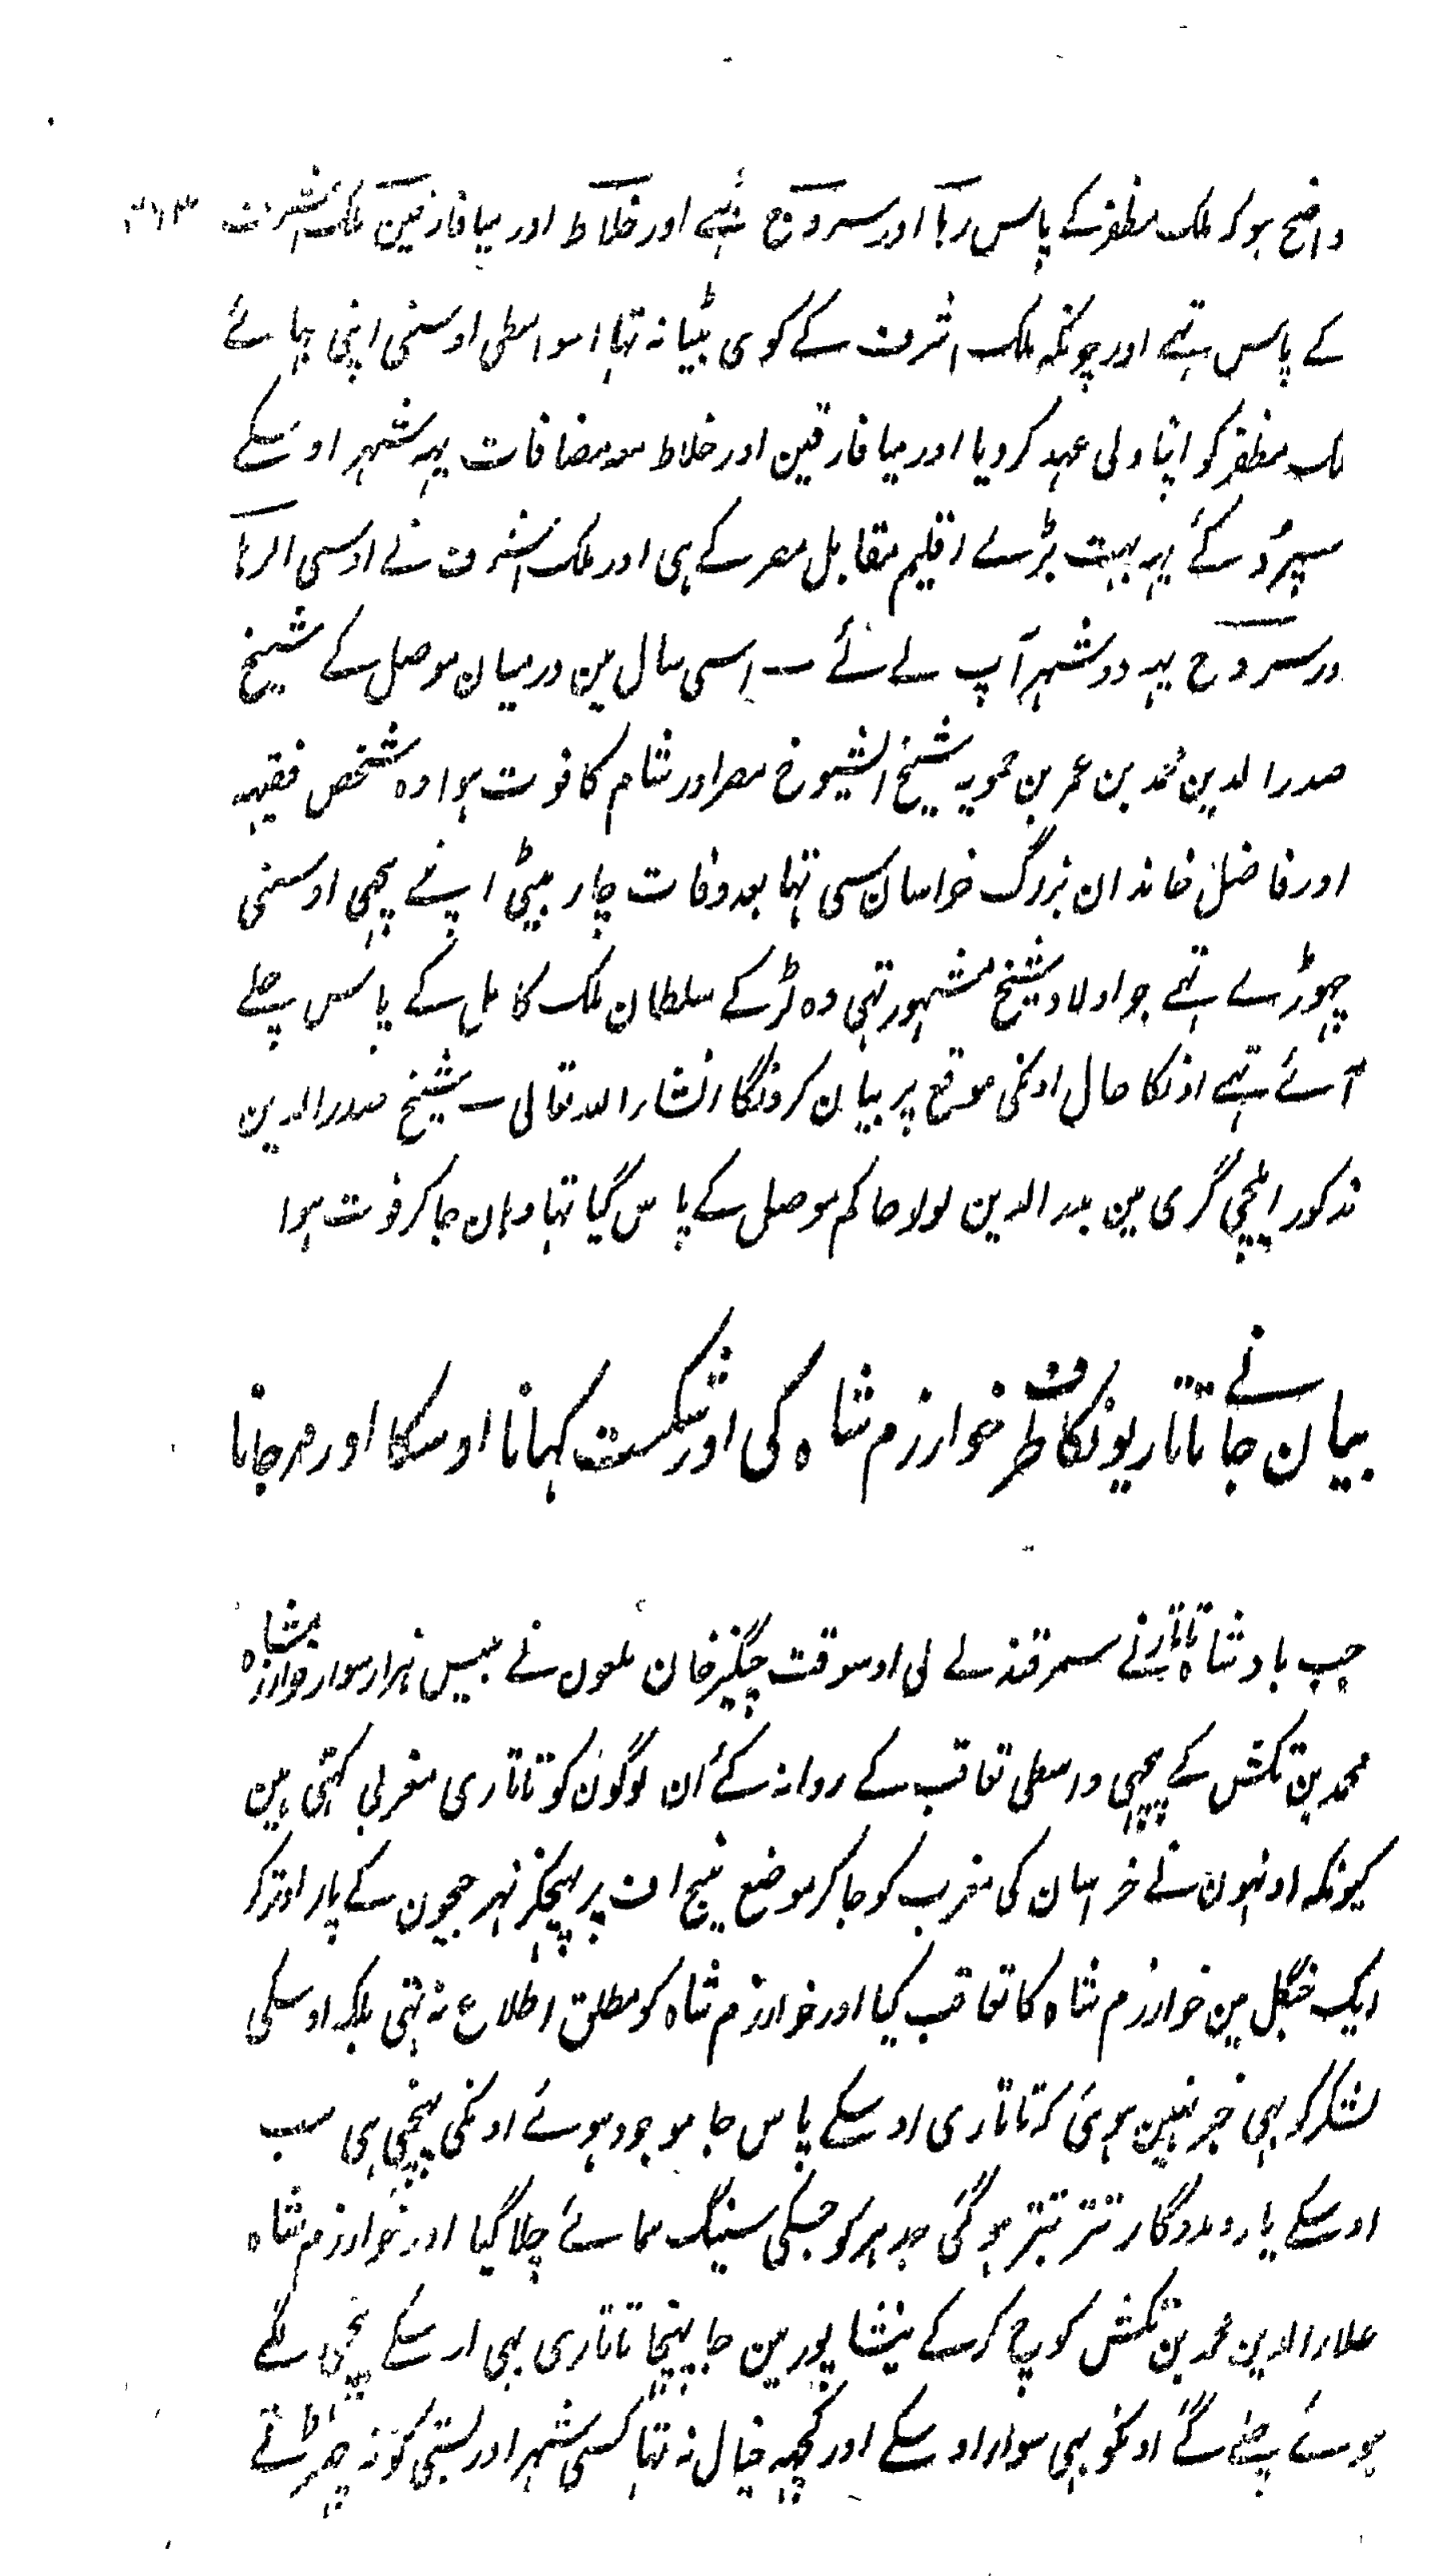 واضح ہو کہ ملک مظفر کے پاس رہا اور سروج تہے اور خلاط اور میافارقین ملک اشرف
کے پاس تہے اور چونکہ ملک اشرف کے کوی بیٹا نہ تہا اسواسطی اوسنی اپنی بہائے
ملک مظفر کو اپنا ولی عہد کر دیا اور میافارقین اور خلاط معہ مضافات یہہ شہر اوسکے
سپرد کئے یہہ بہت بڑے اقلیم مقابل مصر کے ہی اور ملک اشرف نے اوسسی الرہا
ورسروج یہہ دو شہر آپ لے لئے — اسی سال مین درمیان موصل کے شیخ
صدر الدین محمد بن عمر بن حمویہ شیخ الشیوخ مصر اور شام کا فوت ہوا وہ شخص فقیہہ
اور فاضل خاندان بزرگ خراسان سی تہا بعد وفات چار بیٹی اپنے پیچہی اوسنی
چہوڑے تہے جو اولاد شیخ مشہور تہی وہ لڑکے سلطان ملک کامل کے پاس چلے
آئے تہے اونکا حال اونکی موقع پر بیان کرونگا انشاء اللہ تعالی — شیخ صدر الدین
مذکور ایلچی گری مین بدر الدین لولو حاکم موصل کے پاس گیا تہا وہان جا کر فوت ہوا
بیان جانے تاتاریونکا طرف خوارزم شاہ کی اور شکست کہانا اوسکا اور مرجانا
جب بادشاہ تاتار نے سمرقند لے لی اوسوقت چنگیز خان ملعون نے بیس ہزار سوار خوارزمشاہ
محمد بن تکش کے پیچہی واسطی تعاقب کے روانہ کئے ان لوگون کو تاتاری مغربی کہتی ہین
کیونکہ اونہون نے خراسان کی مغرب کو جا کر موضع پنج اب پر پہنچکر نہر جیحون کے پار اوتر کر
ایک جنگل مین خوارزم شاہ کا تعاقب کیا اور خوارزم شاہ کو مطلق اطلاع نہ تہی بلکہ اوسکی
لشکر کو بہی خبر نہین ہوئی کہ تاتاری اوسکے پاس جا موجود ہوئے اونکی پہنچتی ہی سب
اوسکے یار و مددگار تتر بتر ہو گئی جدہر کو جسکی سینگ سمائے چلا گیا اور خوارزم شاہ
علاء الدین محمد بن تکش کوچ کر کے نیشاپور مین جا پہنچا تاتاری بہی اوسکے پیچہی لگے
ہوئے چلے گئے اونکو بہی سوار اوسکے اور کچہہ خیال نہ تہا کسی شہر اور بستی کو نہ چہیڑتے